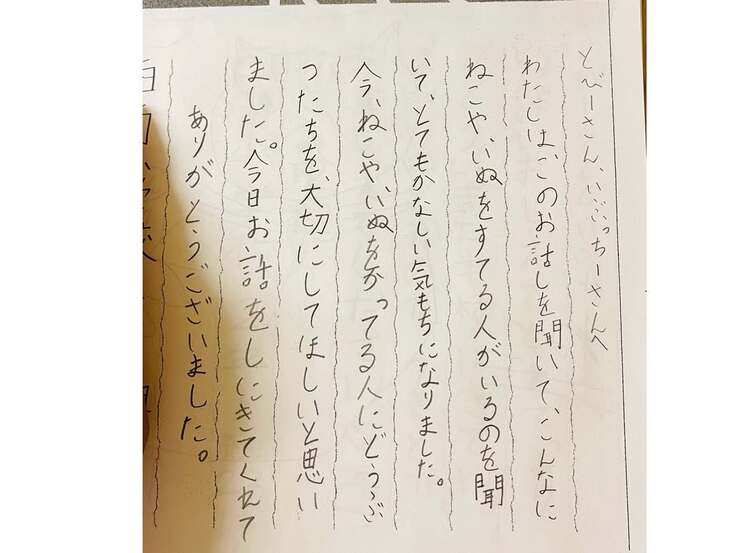 とびーさん、いぶっちーさんへ
わたしは、このお話しを聞いて、こんなに
ねこや、いぬをすてる人がいるのを聞
いて、とてもかなしい気もちになりました。
今、ねこや、いぬをかってる人にどうぶ
つたちを、大切にしてほしいと思い
ました。今日お話をしにきてくれて
ありがとうございました。